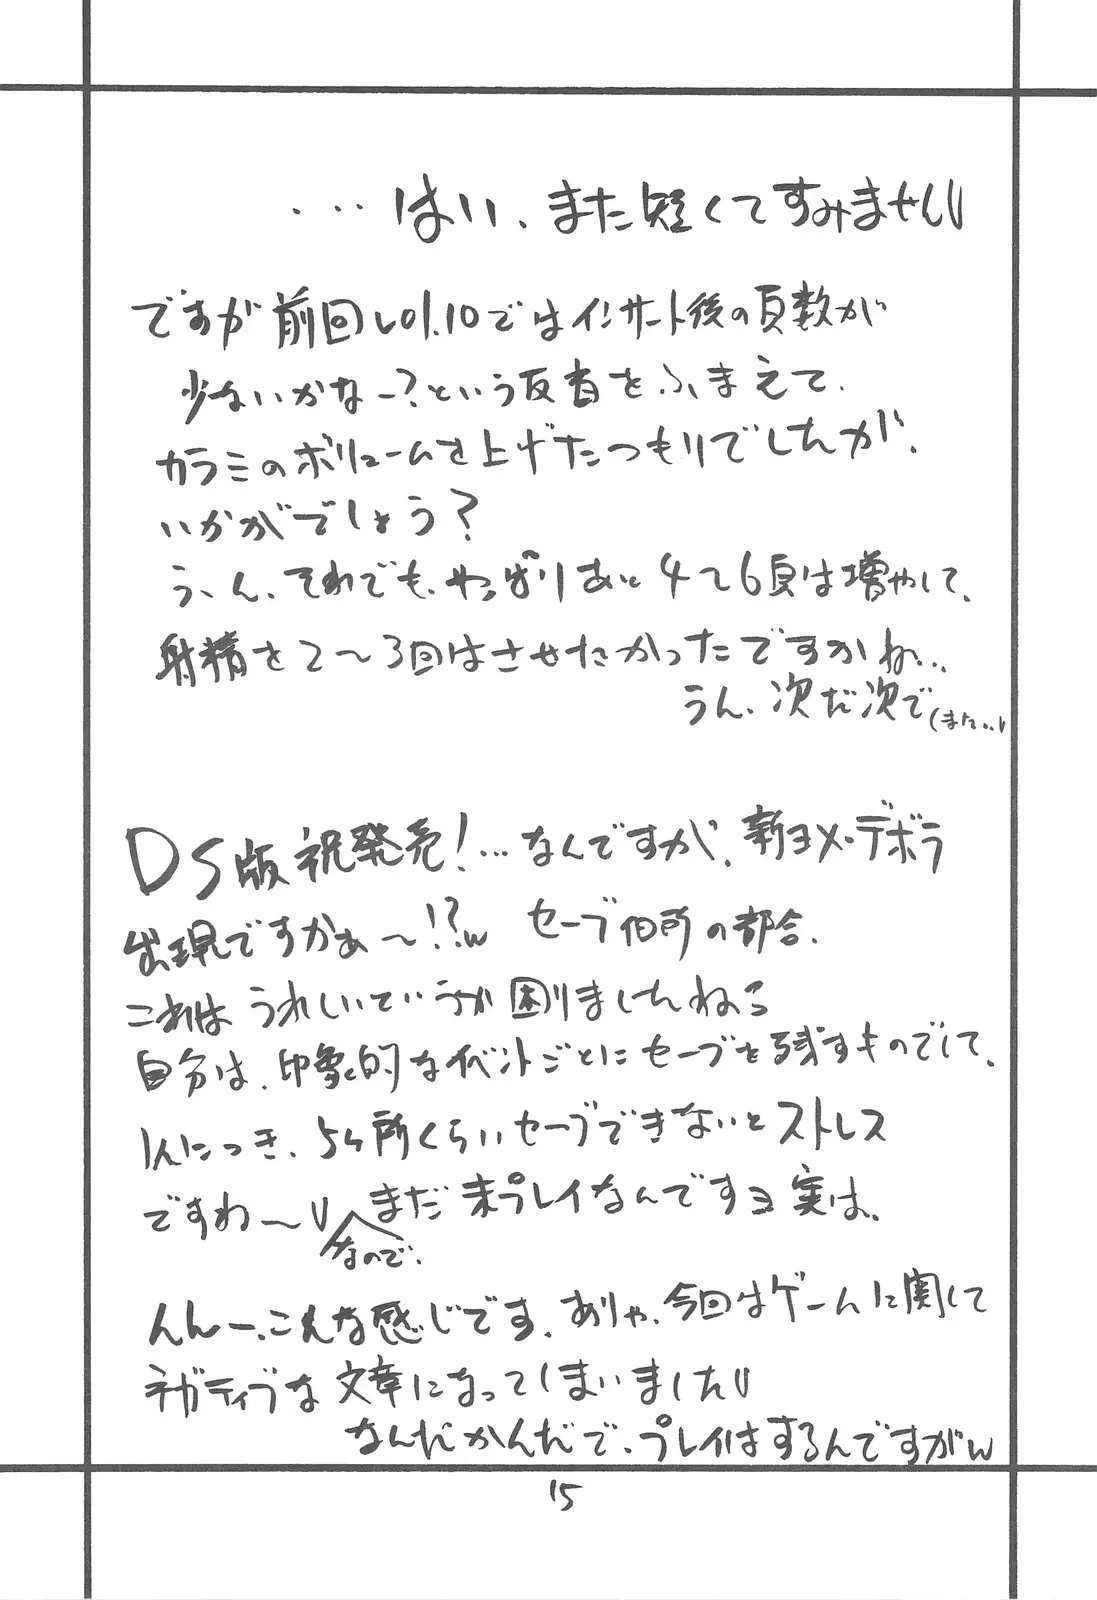 …はい、また短くてすみません
ですが前回vol.10ではインサート後の頁数が
少ないかなー?という反省をふまえて、
カラミのボリュームを上げたつもりでしたが、
いかがでしょう?
う、ん、それでも、やっぱりあと4~6頁は増やして、
射精を2~3回はさせたかったですかね…
うん、次だ次で(また..
DS版祝発売!…なんですが、新ヨメ・デボラ
出現ですかぁ~!?w セーブ個所の都合、
これは うれしいていうか困りましたねぇ
自分は、印象的なイベントごとにセーブを残すものでして、
1人につき、5ヶ所くらいセーブできないとストレス
ですわ~ まだ未プレイなんですヨ実は、
なので、
んんー、こんな感じです、ありゃ、今回はゲームに関して
ネガティブな文章になってしまいました
なんだかんだで、プレイはするんですがw
15